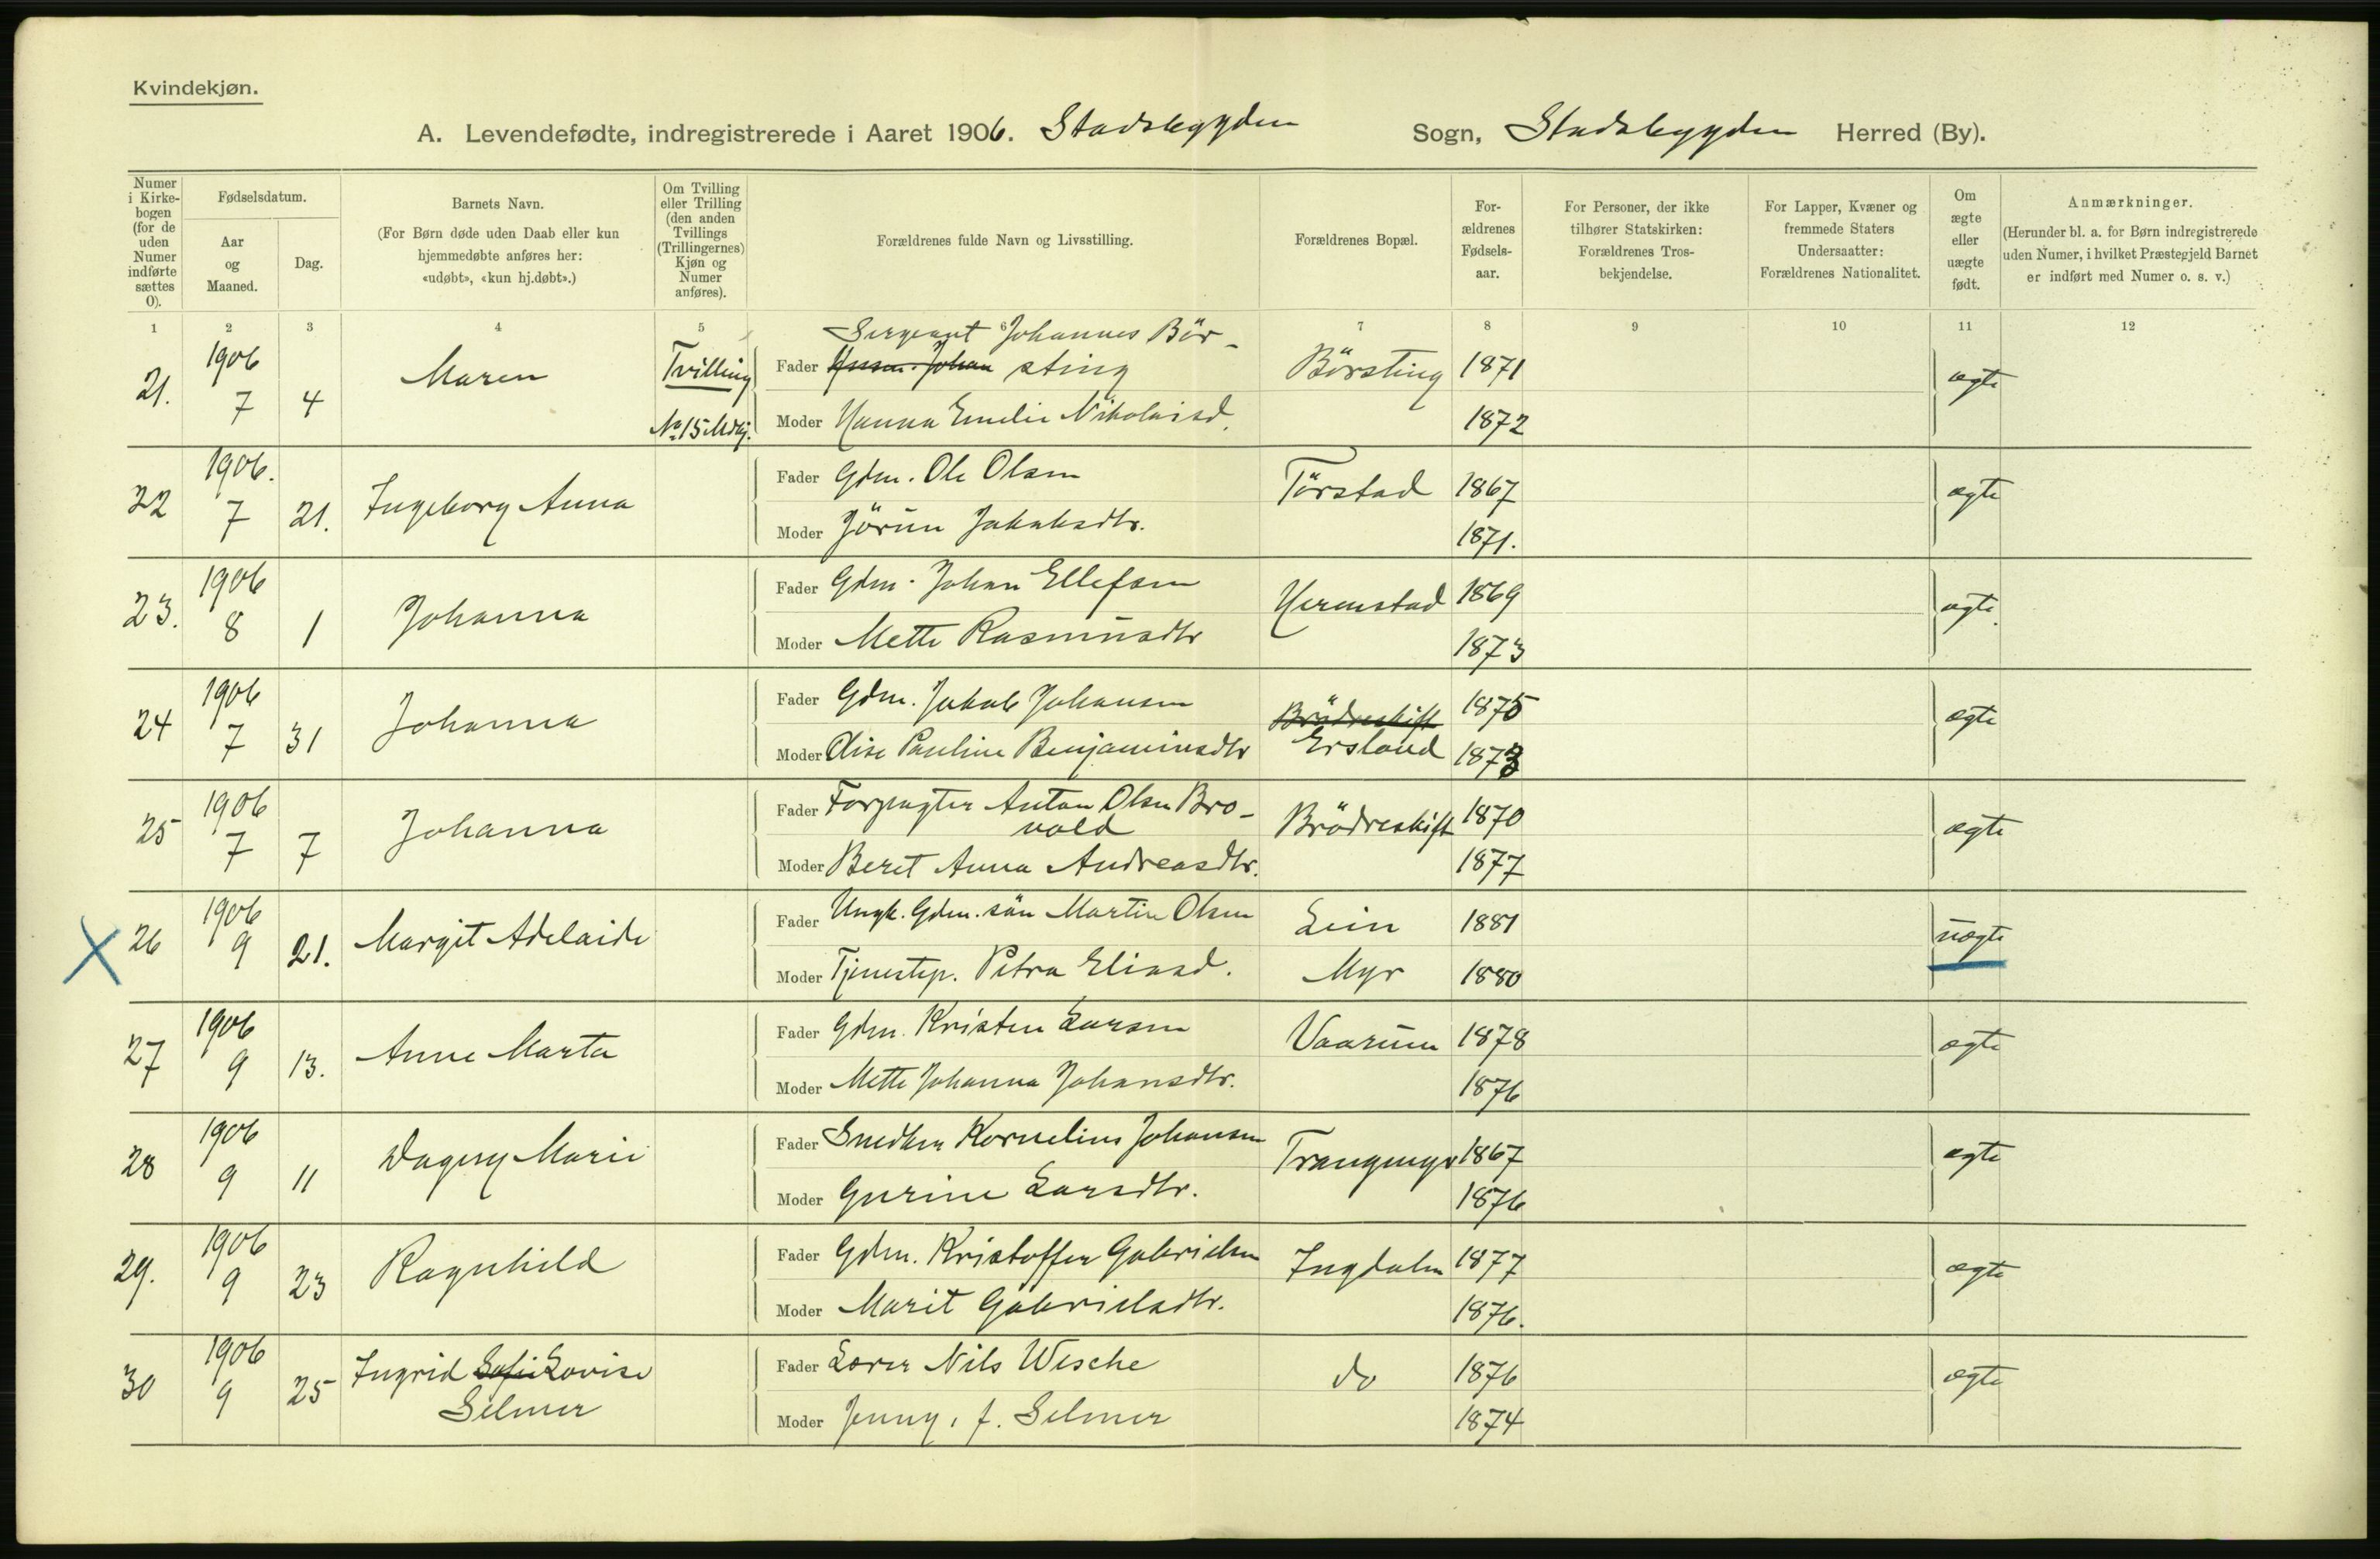 Kvindekjøn.
A. Levendefødte, indregistrerede i Aaret 1906. Stadsbygden Sogn, Stadsbygden Herred (By).
Numer i Kirkebogen (for de uden Numer indførte sættes 0).
Fødselsdatum.
Aar og Maaned.
Dag.
Barnets Navn.
(For Børn døde uden Daab eller kun hjemmedøbte anføres her: «udøbt», «kun hj.døbt».)
Om Tvilling eller Trilling (den anden Tvillings (Trillingernes) Kjøn og Numer anføres).
Forældrenes fulde Navn og Livsstilling.
Forældrenes Bopæl.
Forældrenes Fødselsaar.
For Personer, der ikke tilhører Statskirken: Forældrenes Trosbekjendelse.
For Lapper, Kvæner og fremmede Staters Undersaatter: Forældrenes Nationalitet.
Om ægte eller uægte født.
Anmærkninger.
(Herunder bl. a. for Børn indregistrerede uden Numer, i hvilket Præstegjeld Barnet er indført med Numer o. s. v.)
1 2 3 4 5 6 7 8 9 10 11 12
Sergeant Johannes Bör-
21. 1906 7 4 Maren Tvilling Fader Husm. Johan sting Börsting 1871 ægte
No 15 Mdkj. Moder Hanna Emelie Nikolaisd. 1872
22 1906. 7 21. Ingeborg Anna Fader Gdm. Ole Olsen Törstad 1867 ægte
Moder Jörün Jakobsdtr. 1871.
23. 1906 8 1 Johanna Fader Gdm. Johan Ellefsen Hermstad 1869 ægte.
Moder Mette Rasmüsdtr 1873
24 1906 7 31 Johanna Fader Gdm. Jakob Johansen Brödreskift 1875 ægte
Moder Elise Pauline Benjaminsdtr Ersland 1873
25 1906 7 7 Johanna Fader Forpagter Anton Olsen Bro-
vold Brödreskift 1870 ægte
Moder Beret Anna Andreasdtr. 1877
26 1906 9 21. Margit Adelaide Fader Ungk. Gdm. sön Martin Olsen Lein 1881 üægte
Moder Tjenestep. Petra Eliasd. Myr 1880
27 1906 9 13. Anne Marta Fader Gdm. Kristen Larsen Vaarüm 1878 ægte
Moder Mette Johanna Johansdtr. 1876
28 1906 9 11 Dagny Marie Fader Snedker Kornelius Johansen Trangmyr 1867 ægte
Moder Gurine Larsdtr. 1876
29. 1906 9 23 Ragnhild Fader Gdm. Kristoffer Gabrielsen Ingdalen 1877 ægte
Moder Marit Gabrielsdtr. 1876.
30 1906 9 25 Ingrid Sofie Lovise Fader Lærer Nils Wesche do 1876 ægte
Selmer Moder Jenny, f. Selmer 1874